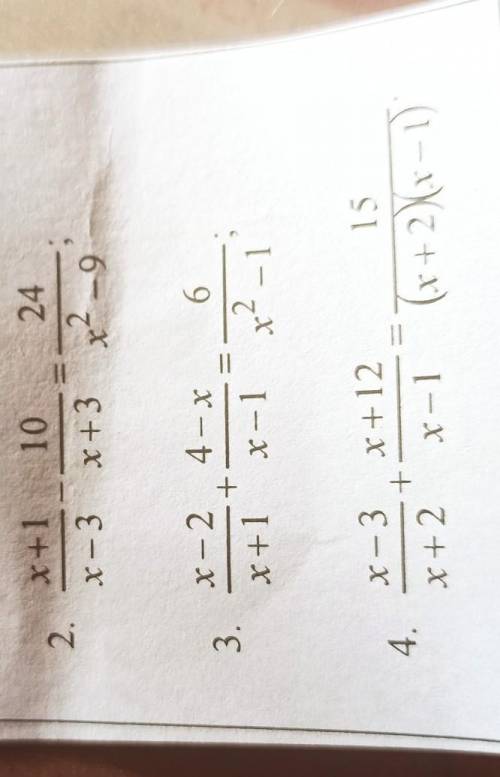 2. \frac{x+1}{x-3} - \frac{10}{x+3} = \frac{24}{x^2-9};
3. \frac{x-2}{x+1} + \frac{4-x}{x-1} = \frac{6}{x^2-1};
4. \frac{x-3}{x+2} + \frac{x+12}{x-1} = \frac{15}{(x+2)(x-1)};